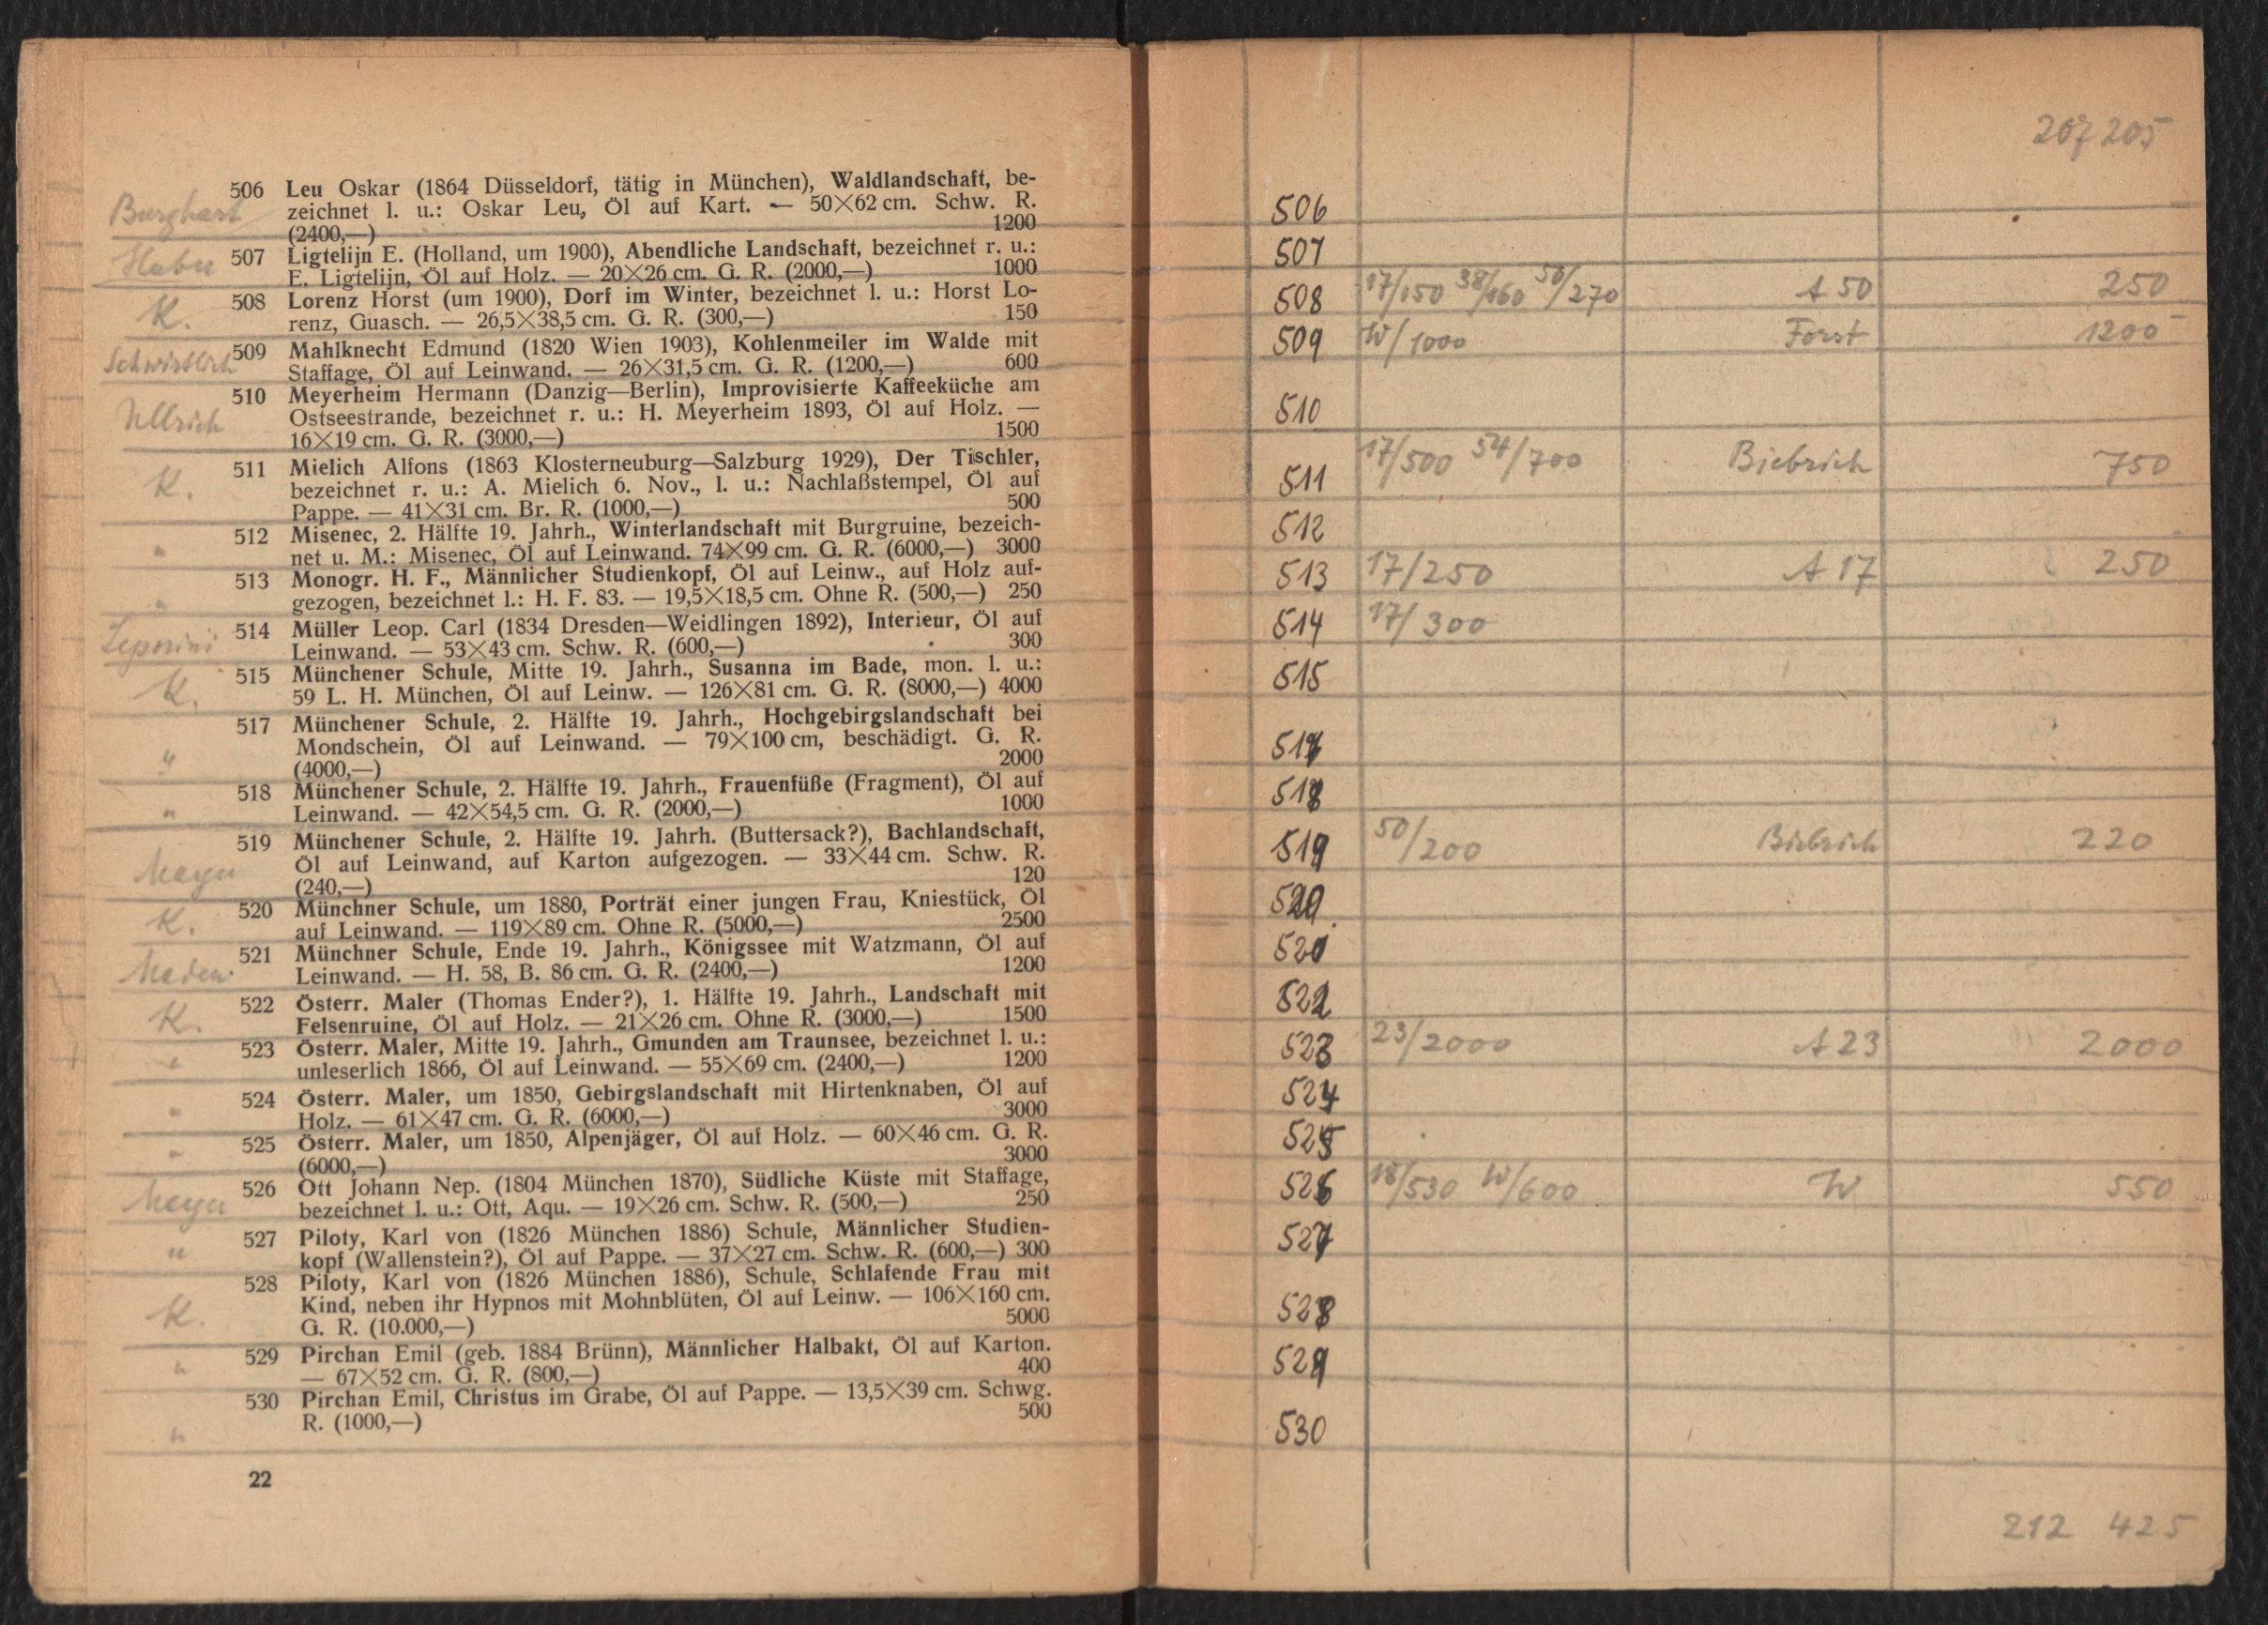 506 Leu Oskar (1864 Düsseldorf, tätig in München), Waldlandschaft, be-
Burghart zeichnet l. u.: Oskar Leu, Öl auf Kart. — 50×62 cm. Schw. R.
(2400,—) 1200
Huber 507 Ligtelijn E. (Holland, um 1900), Abendliche Landschaft, bezeichnet r. u.:
E. Ligtelijn, Öl auf Holz. — 20×26 cm. G. R. (2000,—) 1000
K. 508 Lorenz Horst (um 1900), Dorf im Winter, bezeichnet l. u.: Horst Lo-
renz, Guasch. — 26,5×38,5 cm. G. R. (300,—) 150
509 Mahlknecht Edmund (1820 Wien 1903), Kohlenmeiler im Walde mit
Staffage, Öl auf Leinwand. — 26×31,5 cm. G. R. (1200,—) 600
510 Meyerheim Hermann (Danzig—Berlin), Improvisierte Kaffeeküche am
Ullrich Ostseestrande, bezeichnet r. u.: H. Meyerheim 1893, Öl auf Holz. —
16×19 cm. G. R. (3000,—) 1500
511 Mielich Alfons (1863 Klosterneuburg—Salzburg 1929), Der Tischler,
K. bezeichnet r. u.: A. Mielich 6. Nov., l. u.: Nachlaßstempel, Öl auf
Pappe. — 41×31 cm. Br. R. (1000,—) 500
" 512 Misenec, 2. Hälfte 19. Jahrh., Winterlandschaft mit Burgruine, bezeich-
net u. M.: Misenec, Öl auf Leinwand. 74×99 cm. G. R. (6000,—) 3000
" 513 Monogr. H. F., Männlicher Studienkopf, Öl auf Leinw., auf Holz auf-
gezogen, bezeichnet l.: H. F. 83. — 19,5×18,5 cm. Ohne R. (500,—) 250
Leporini 514 Müller Leop. Carl (1834 Dresden—Weidlingen 1892), Interieur, Öl auf
Leinwand. — 53×43 cm. Schw. R. (600,—) 300
K. 515 Münchener Schule, Mitte 19. Jahrh., Susanna im Bade, mon. l. u.:
59 L. H. München, Öl auf Leinw. — 126×81 cm. G. R. (8000,—) 4000
517 Münchener Schule, 2. Hälfte 19. Jahrh., Hochgebirgslandschaft bei
" Mondschein, Öl auf Leinwand. — 79×100 cm, beschädigt. G. R.
(4000,—) 2000
518 Münchener Schule, 2. Hälfte 19. Jahrh., Frauenfüße (Fragment), Öl auf
" Leinwand. — 42×54,5 cm. G. R. (2000,—) 1000
519 Münchener Schule, 2. Hälfte 19. Jahrh. (Buttersack?), Bachlandschaft,
Mayer Öl auf Leinwand, auf Karton aufgezogen. — 33×44 cm. Schw. R.
(240,—) 120
K. 520 Münchner Schule, um 1880, Porträt einer jungen Frau, Kniestück, Öl
auf Leinwand. — 119×89 cm. Ohne R. (5000,—) 2500
521 Münchner Schule, Ende 19. Jahrh., Königssee mit Watzmann, Öl auf
Leinwand. — H. 58, B. 86 cm. G. R. (2400,—) 1200
K. 522 Österr. Maler (Thomas Ender?), 1. Hälfte 19. Jahrh., Landschaft mit
Felsenruine, Öl auf Holz. — 21×26 cm. Ohne R. (3000,—) 1500
" 523 Österr. Maler, Mitte 19. Jahrh., Gmunden am Traunsee, bezeichnet l. u.:
unleserlich 1866, Öl auf Leinwand. — 55×69 cm. (2400,—) 1200
" 524 Österr. Maler, um 1850, Gebirgslandschaft mit Hirtenknaben, Öl auf
Holz. — 61×47 cm. G. R. (6000,—) 3000
" 525 Österr. Maler, um 1850, Alpenjäger, Öl auf Holz. — 60×46 cm. G. R.
(6000,—) 3000
Mayer 526 Ott Johann Nep. (1804 München 1870), Südliche Küste mit Staffage,
bezeichnet l. u.: Ott, Aqu. — 19×26 cm. Schw. R. (500,—) 250
" 527 Piloty, Karl von (1826 München 1886) Schule, Männlicher Studien-
kopf (Wallenstein?), Öl auf Pappe. — 37×27 cm. Schw. R. (600,—) 300
528 Piloty, Karl von (1826 München 1886), Schule, Schlafende Frau mit
K. Kind, neben ihr Hypnos mit Mohnblüten, Öl auf Leinw. — 106×160 cm.
G. R. (10.000,—) 5000
" 529 Pirchan Emil (geb. 1884 Brünn), Männlicher Halbakt, Öl auf Karton.
— 67×52 cm. G. R. (800,—) 400
530 Pirchan Emil, Christus im Grabe, Öl auf Pappe. — 13,5×39 cm. Schwg.
" R. (1000,—) 500
22
207 205
506
507
508 17/150 38/160 50/270 A 50 250
509 W/1000 Forst 1200
510
511 17/500 54/700 Biebrich 750
512
513 17/250 A 17 250
514 17/300
515
517
518
519 50/200 Biebrich 220
520
521
522
523 23/2000 A 23 2000
524
525
526 18/530 W/600 W 550
527
528
529
530
212 425